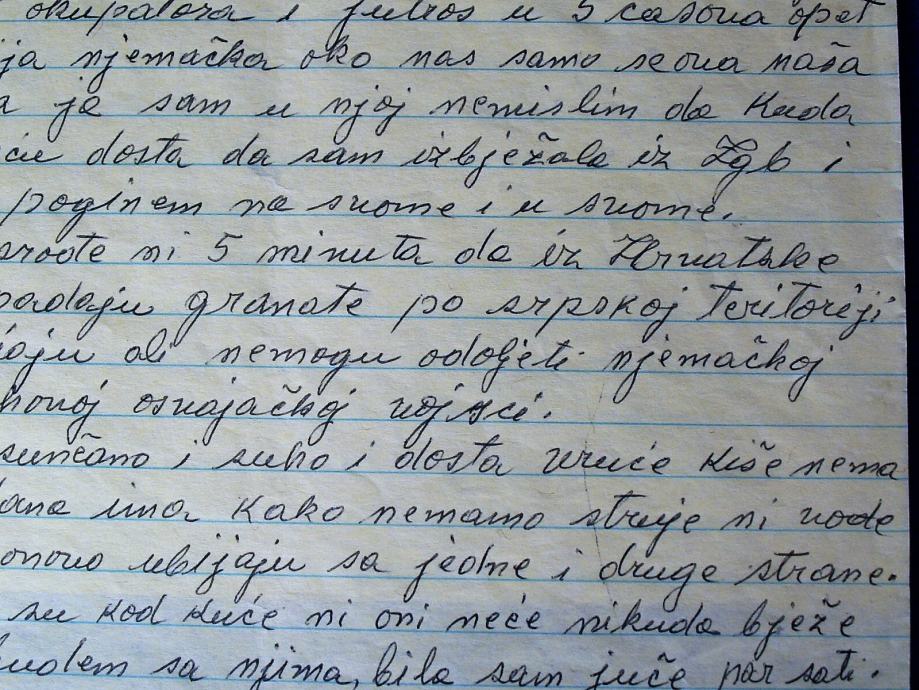 okupatora i jutros u 5 časova opet
ja njemačka oko nas samo sova naša
a ja sam u njoj nemislim da kuda
ću dosta da sam izbježala iz Zgb i
poginem na svome i u svome.
ni 5 minuta da iz Hrvatske
padaju granate po srpskoj teritoriji
ali nemogu odoljeti njemačkoj
hovoj osvajačkoj vojsci.
sunčano i suho i dosta vruće kiše nema
dana ima kako nemamo struje ni vode
onovo ubijaju sa jedne i druge strane.
su kod kuće ni oni neće nikuda bježe
budem sa njima, bila sam juče par sati.